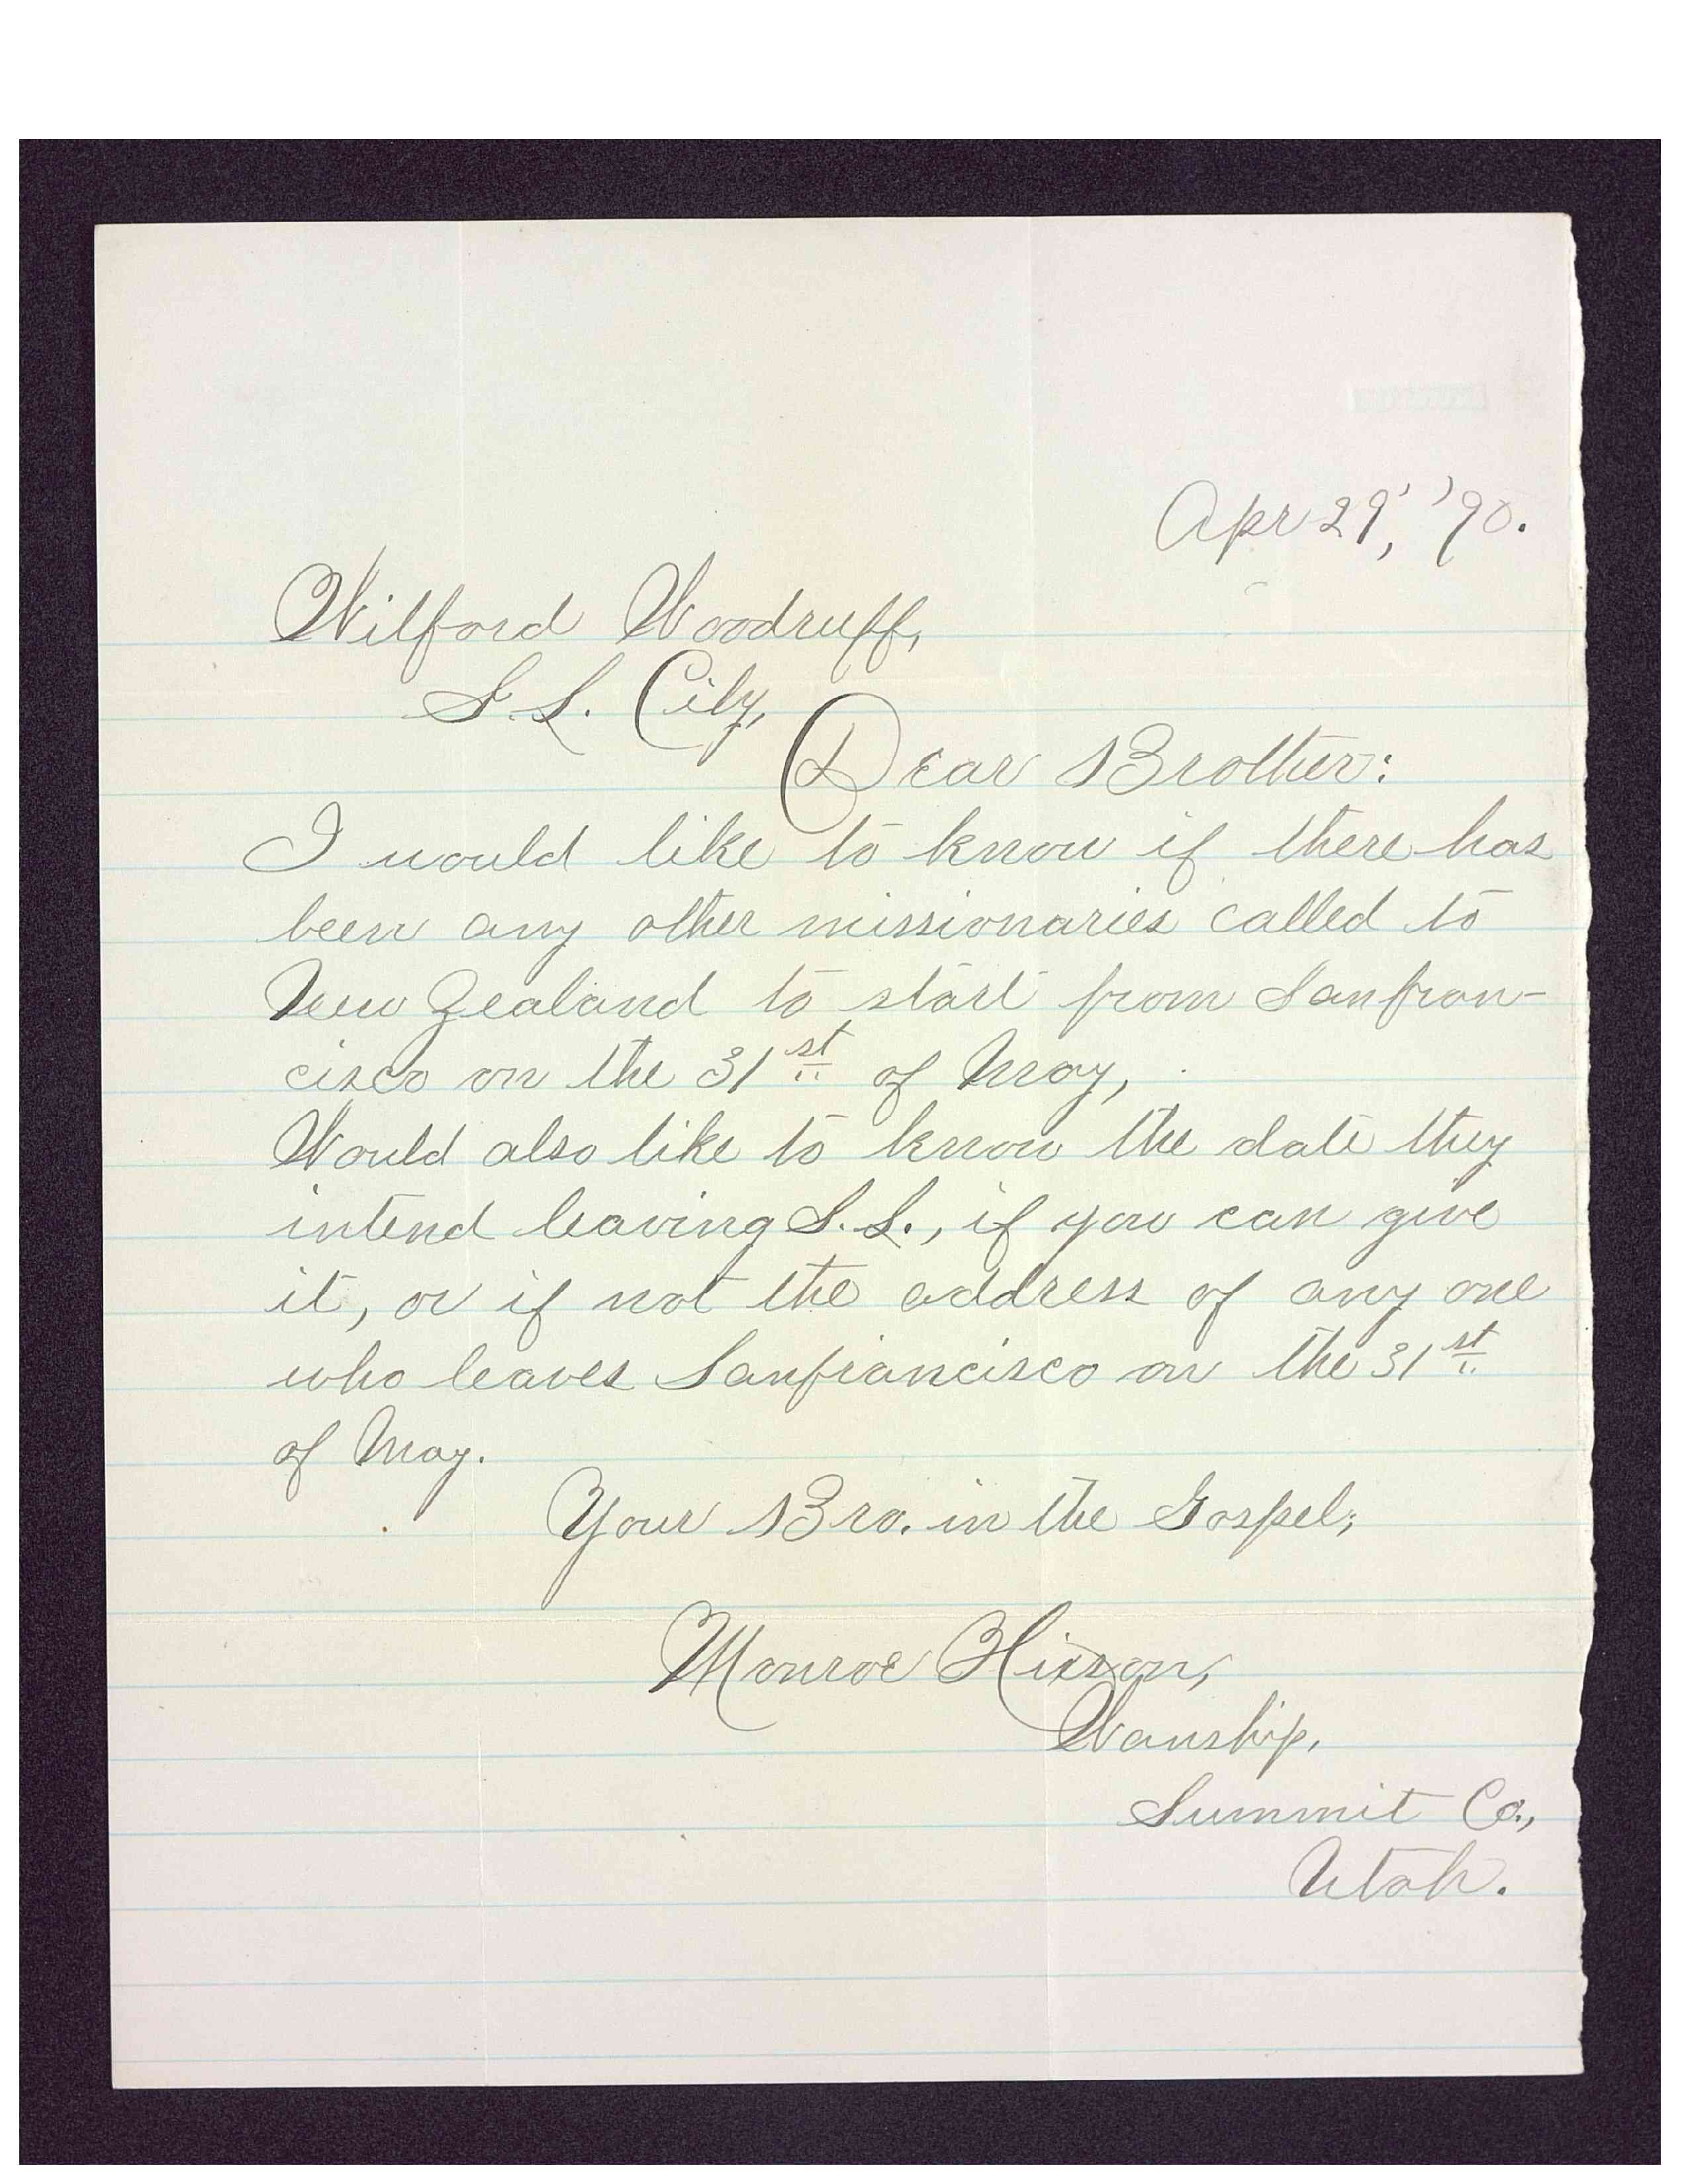 Apr 29', '90.
Wilford Woodruff,
S. L. City,
Dear Brother:
I would like to know if there has
been any other missionaries called to
New Zealand to start from Sanfran-
cisco on the 31st of May,
Would also like to know the date they
intend leaving S. L., if you can give
it, or if not the address of any one
who leaves Sanfrancisco on the 31st
of May.
Your Bro. in the Gospel;
Monroe Hixson,
Wanship,
Summit Co.,
Utah.